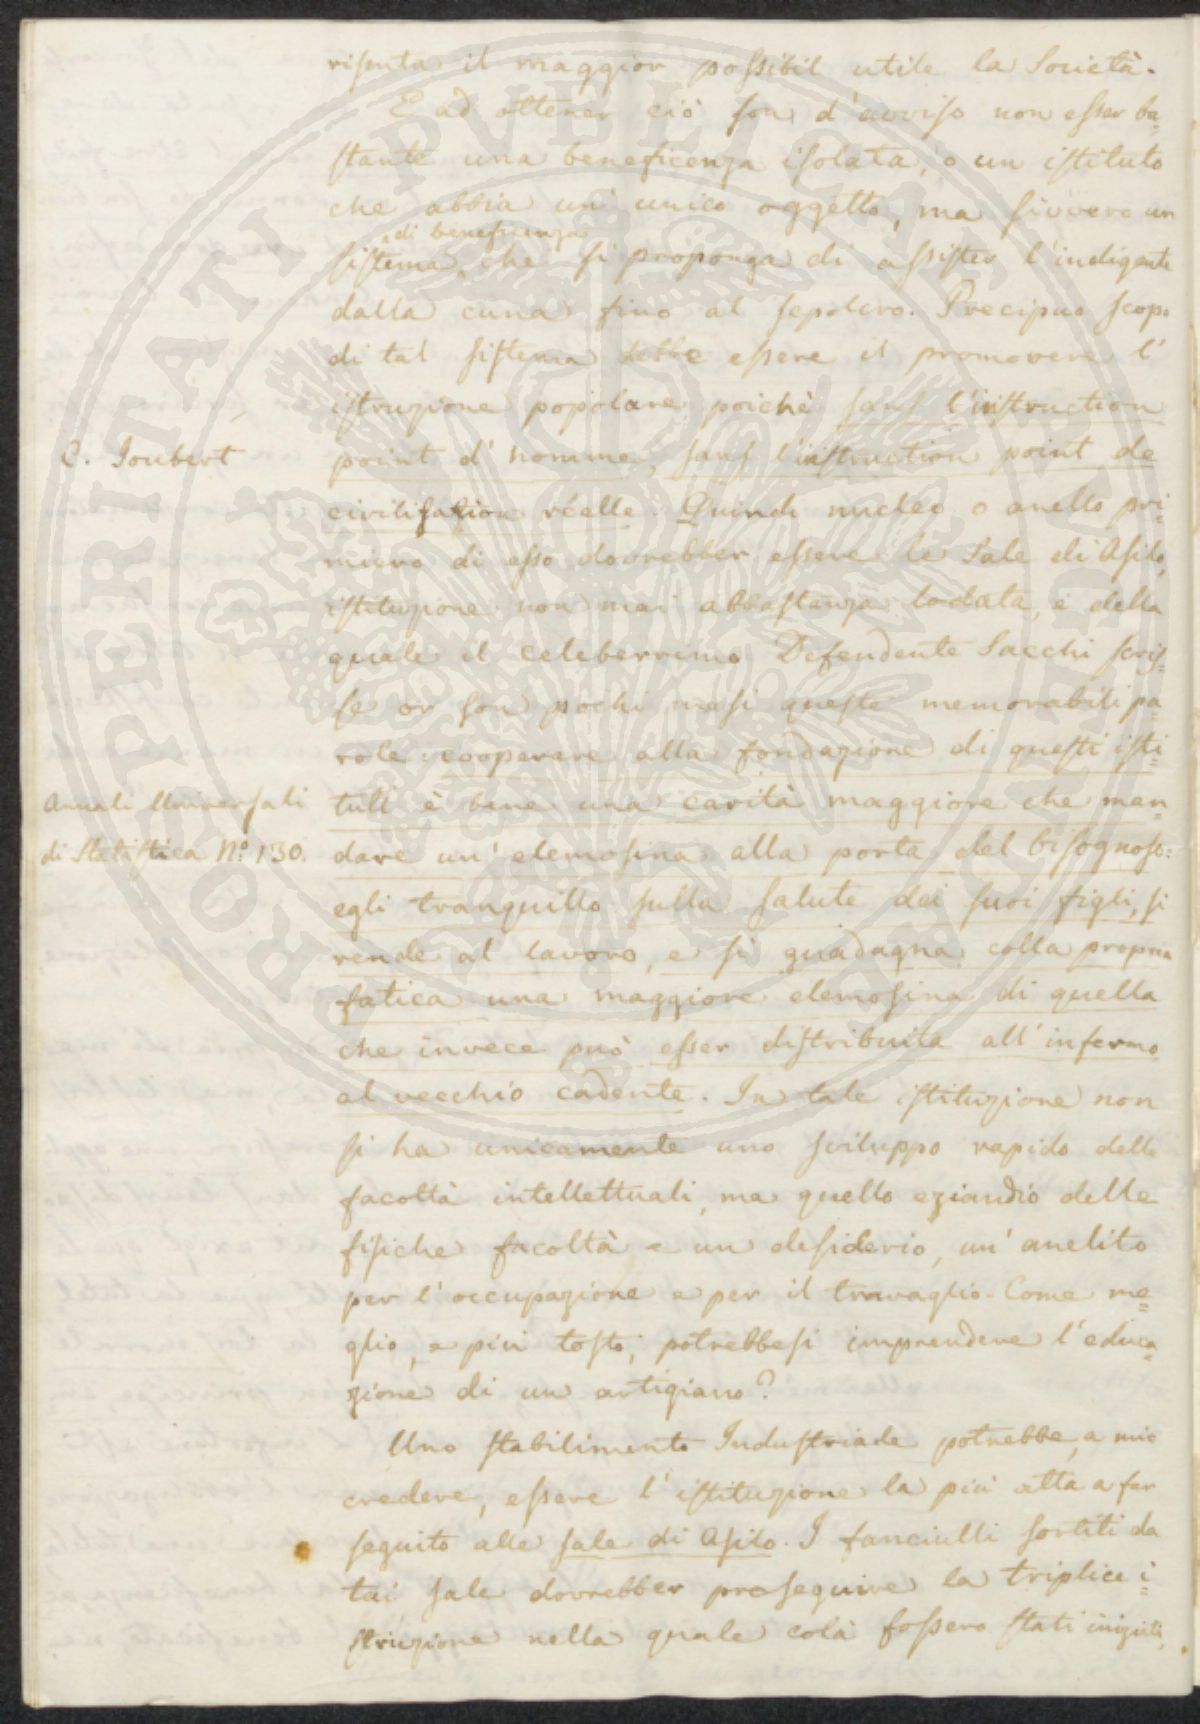 risenta il maggior possibil utile la Società.
E ad ottener ciò son d'avviso non esser ba=
stante una beneficenza isolata, o un istituto
che abbia un' unico oggetto, ma sivvero un
di beneficenza
sistema, che si proponga di assister l'indigente
dalla cuna fino al sepolcro. Precipuo scopo
di tal sistema debbe essere il promovere l'
istruzione popolare poichè sans l'instruction
C. Joubert
point d'homme, sans l'instruction point de
civilisation réelle. Quindi nucleo o anello pri=
miero di esso dovrebber essere le Sale di Asilo,
istituzione non mai abbastanza lodata, e della
quale il celeberrimo Defendente Sacchi scris=
se or son pochi mesi queste memorabili pa=
role: cooperare alla fondazione di questi isti=
Annali Universali
di Statistica N.º 130.
tuti è bene una carità maggiore che man=
dare un' elemosina alla porta del bisognoso:
egli tranquillo sulla salute dei suoi figli, si
rende al lavoro, e si guadagna colla propria
fatica una maggiore elemosina di quella
che invece può esser distribuita all'infermo
al vecchio cadente. In tale istituzione non
si ha unicamente uno sviluppo rapido delle
facoltà intellettuali, ma quello eziandio delle
fisiche facoltà e un desiderio, un' anelito
per l'occupazione e per il travaglio. Come me=
glio, e più tosto, potrebbesi imprendere l'educa=
zione di un artigiano?
Uno stabilimento Industriale potrebbe, a mio
credere, essere l'istituzione la più atta a far
seguito alle sale di Asilo. I fanciulli sortiti da
tai sale dovrebber proseguire la triplice i=
struzione nella quale colà fossero stati iniziati,
PROSPERITATI PVBLICAE AVGENDAE